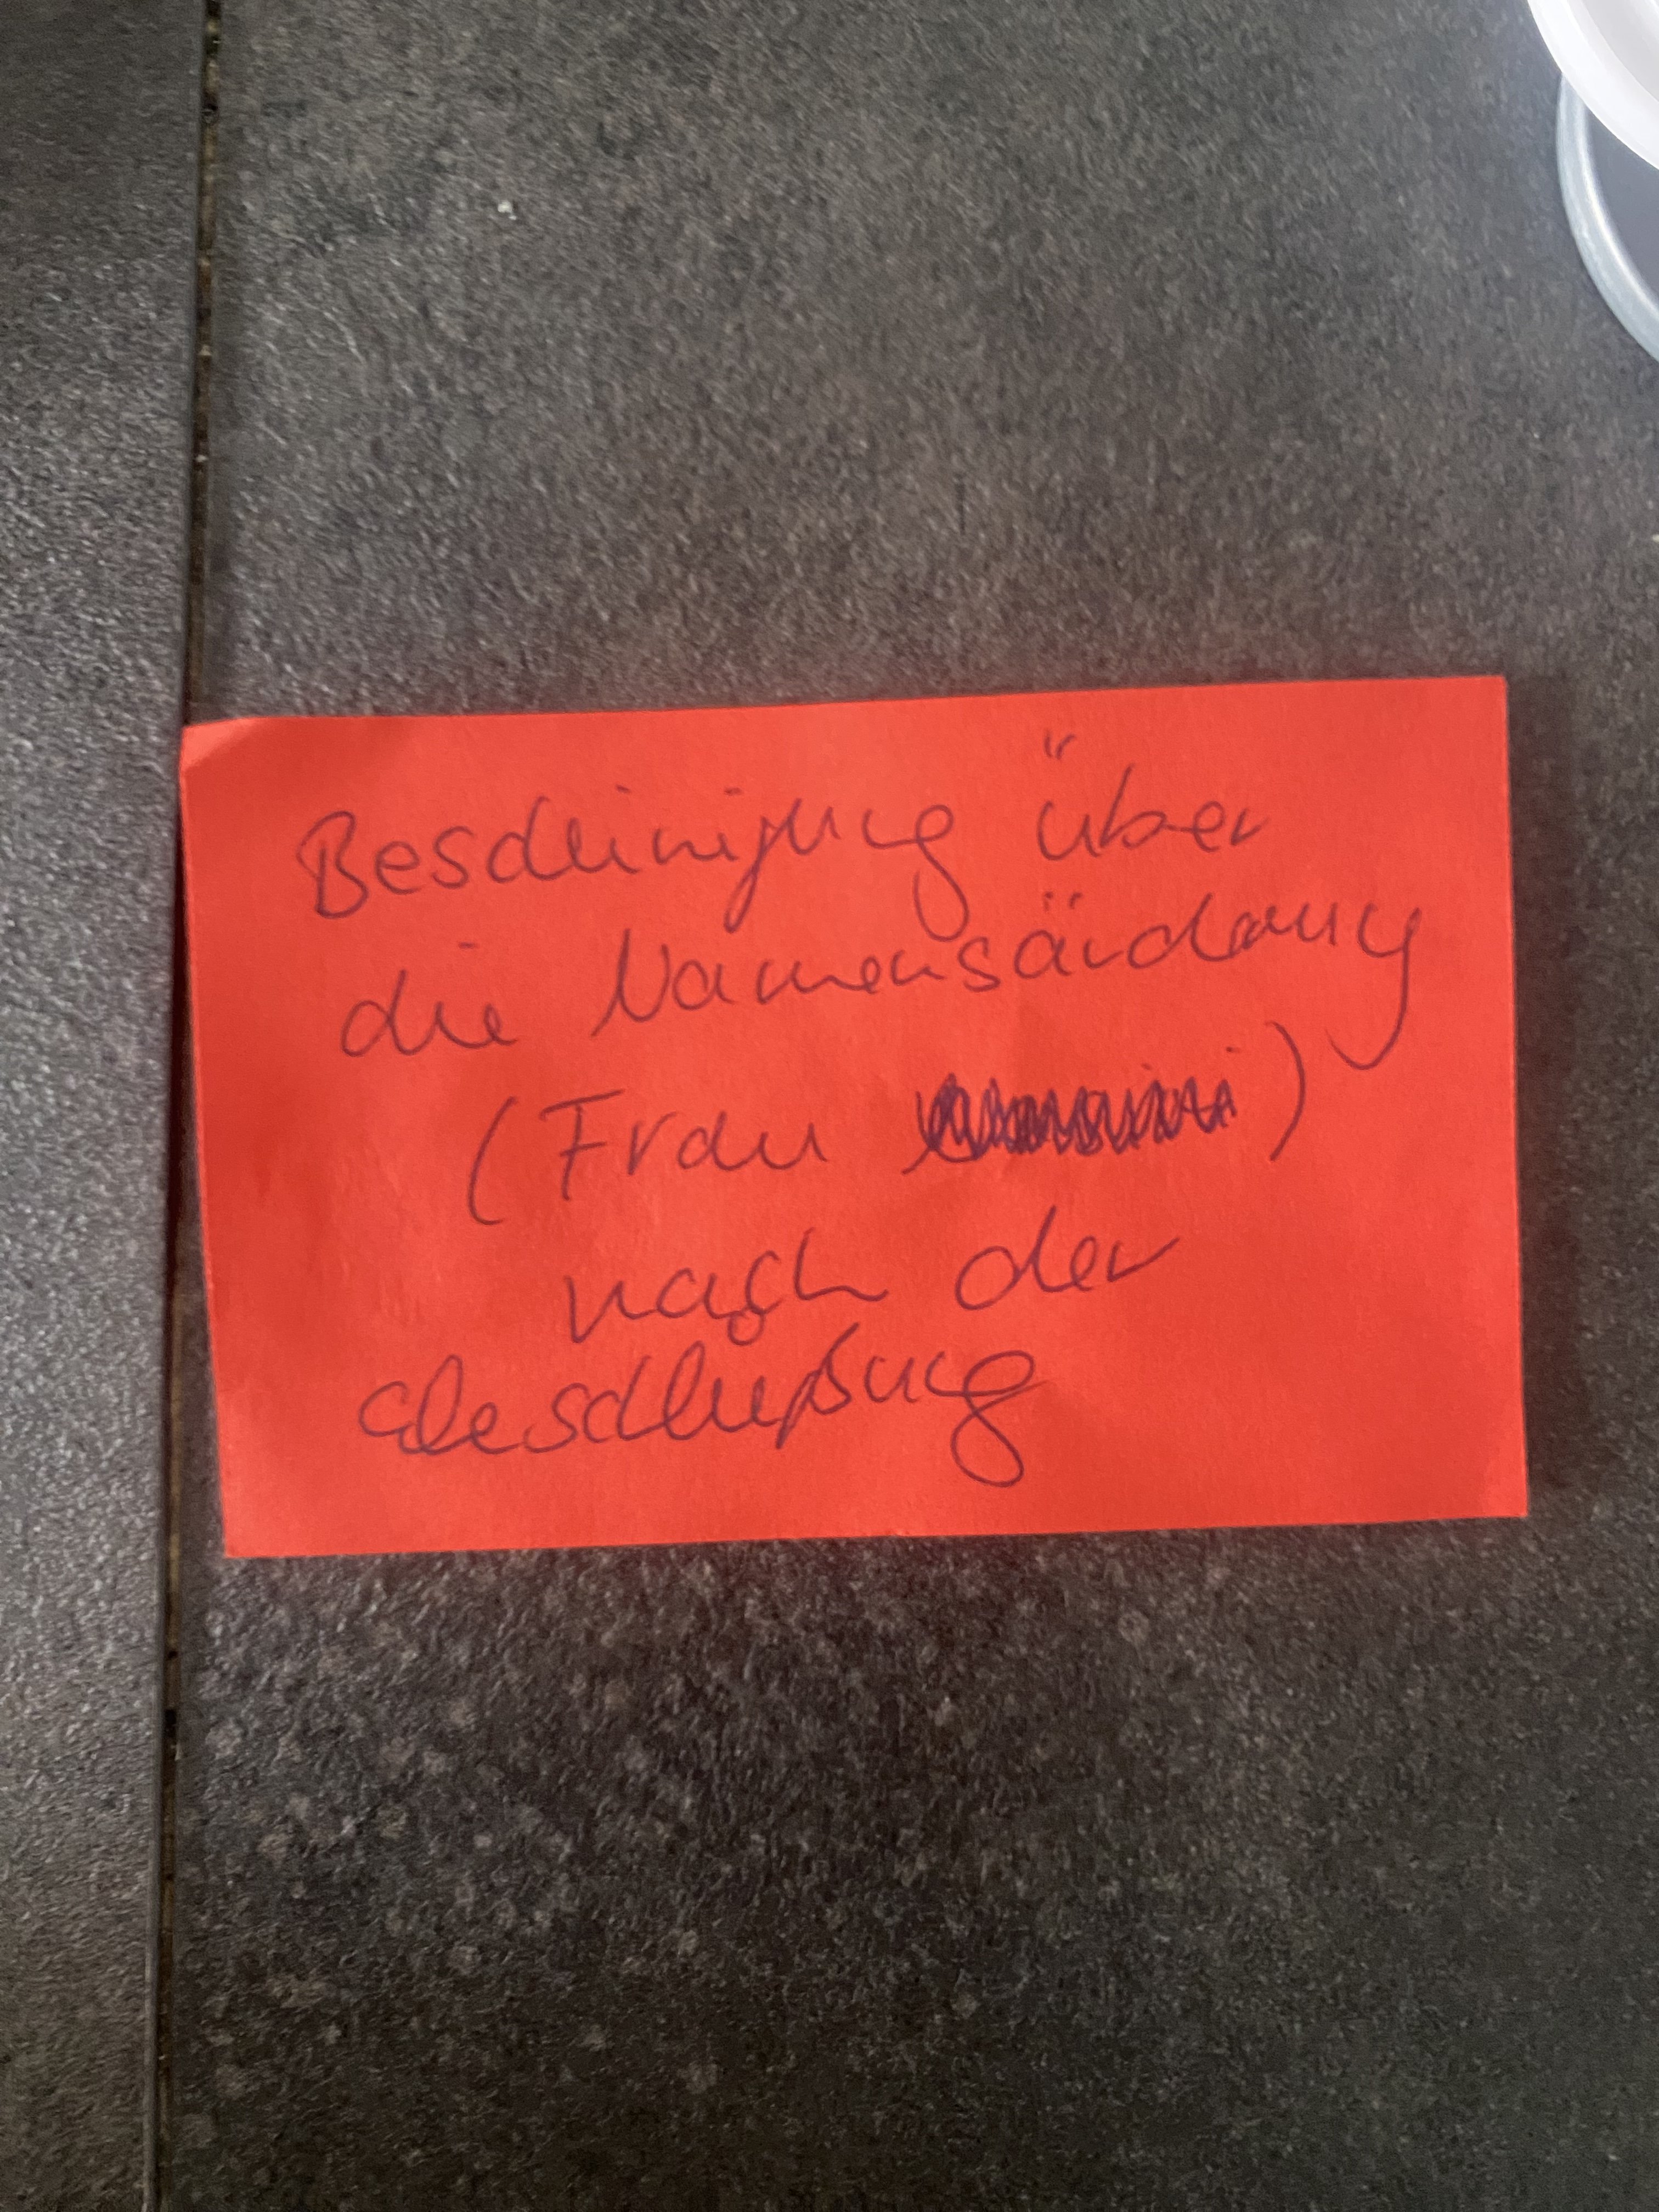 Bescheinigung über
die Namensänderung
(Frau )
nach der
Eheschließung